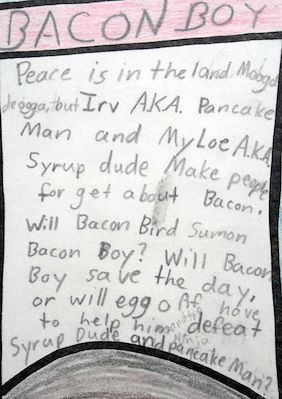 BACON BOY
Peace is in the land
but Irv A.K.A. Pancake
Man and MyLoe A.K.A.
Syrup dude Make people
for get about Bacon.
Will Bacon Bird Sumon
Bacon Boy? Will Bacon
Boy save the day,
or will egg oAf have
to help him defeat
Syrup Dude and pancake Man?